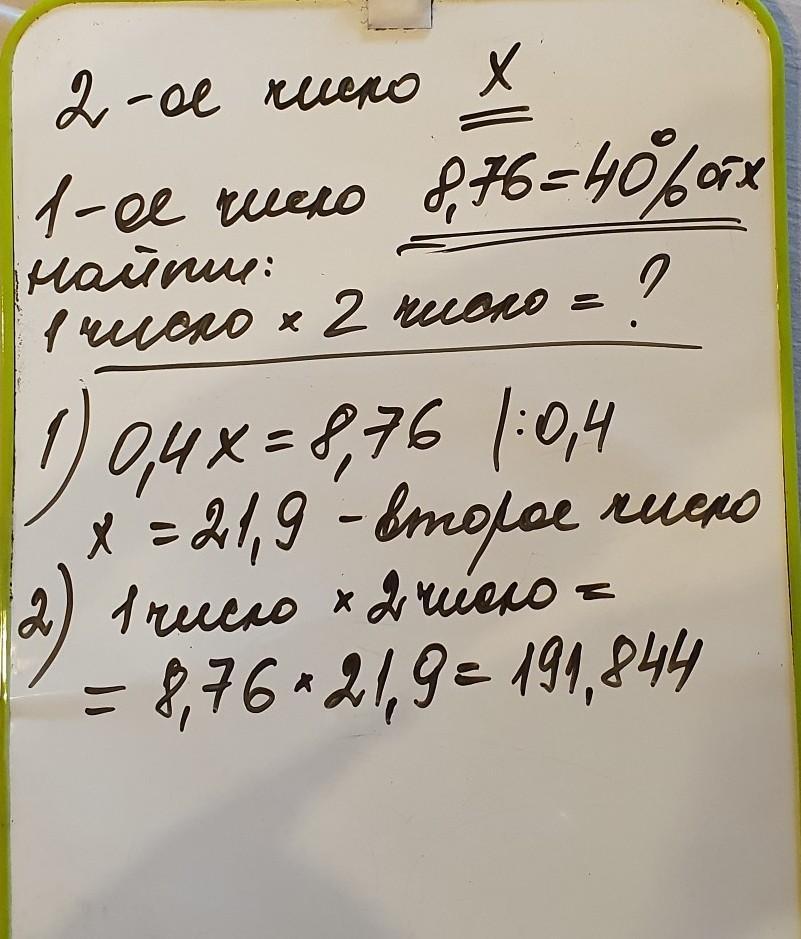 2-ое число x
1-ое число 8,76=40% от x
найти:
1 число × 2 число = ?
1) 0,4x=8,76 |:0,4
x = 21,9 - второе число
2) 1 число × 2 число =
= 8,76 × 21,9 = 191,844